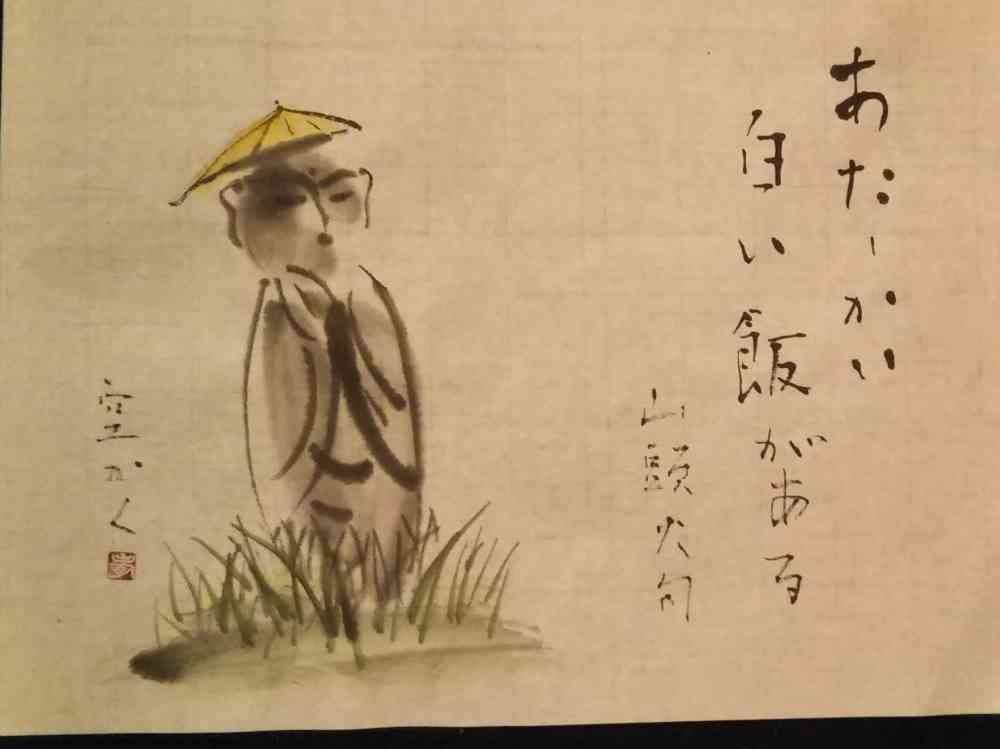 あたゝかい
白い飯がある
山頭火句
空かく